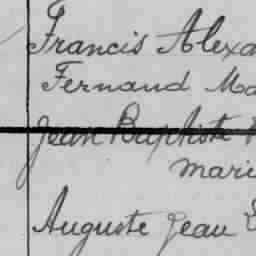 Francis Alexa
Fernand Ma
Jean Baptiste
Mari
Auguste Jean